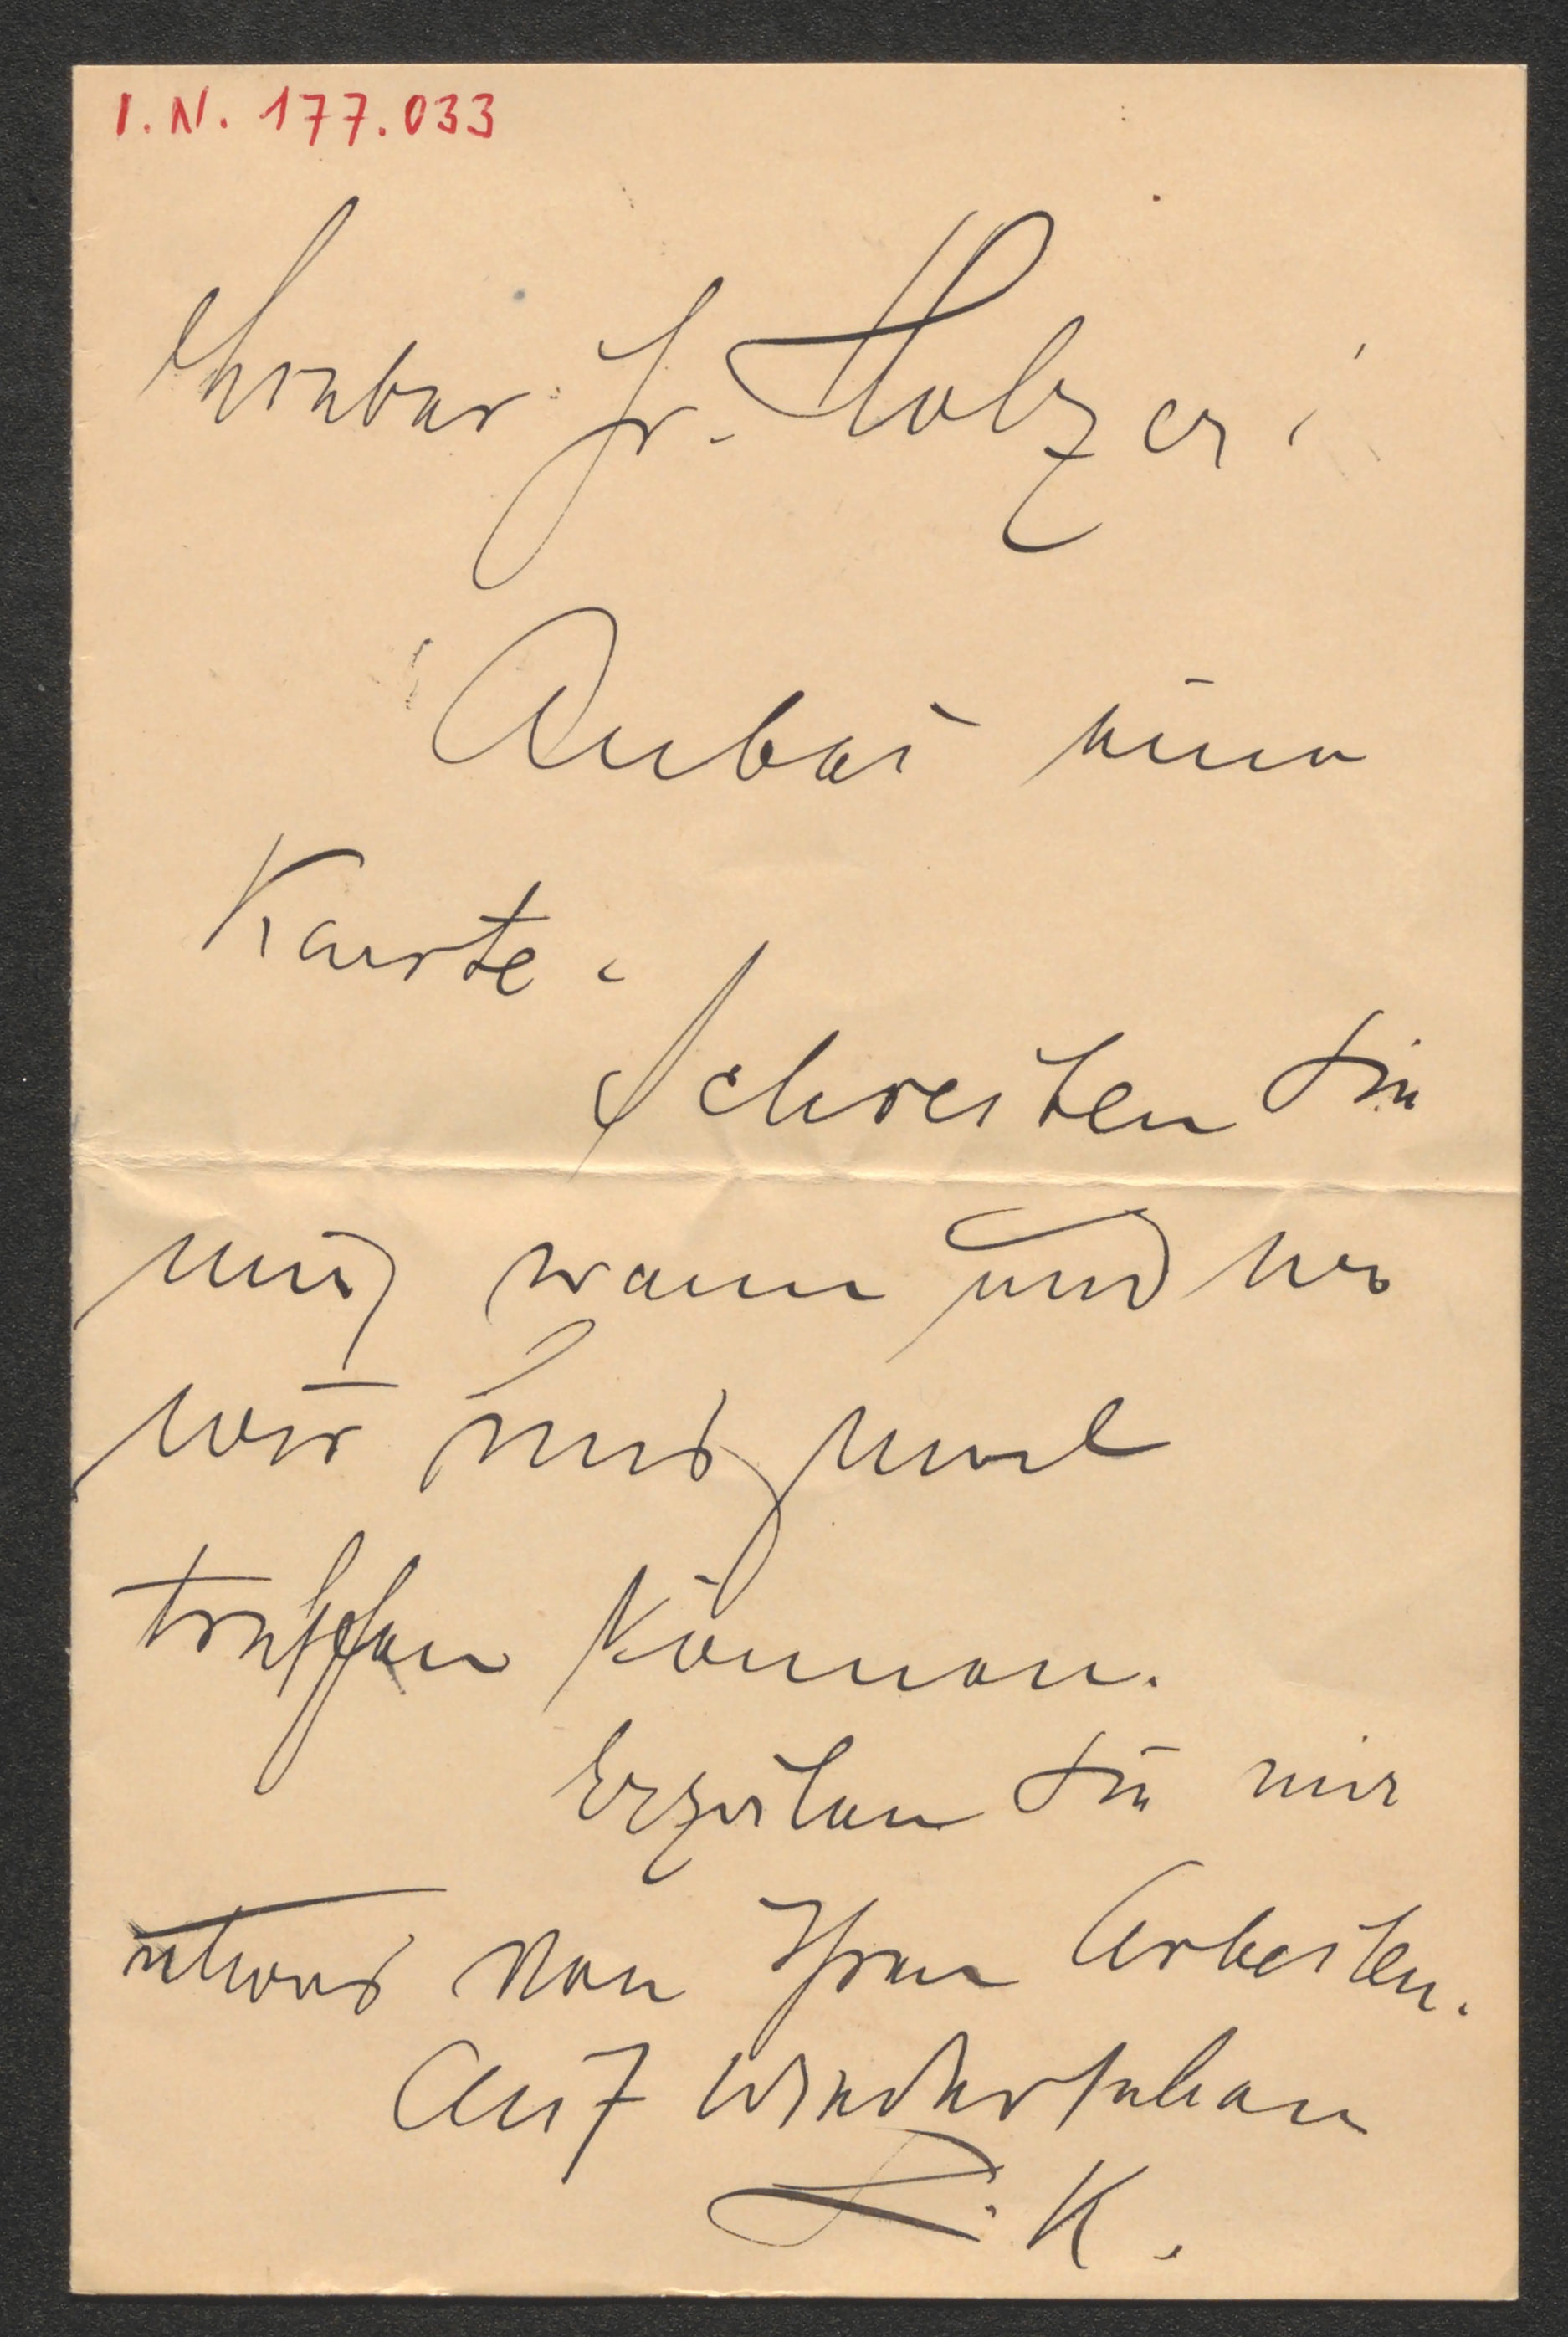 I. N. 177.033
Lieber Fr. Holzer!
Anbei eine
Karte.
Schreiben Sie
mir, wann und wo
wir uns mal
treffen können.
Erzälen Sie mir
etwas von Ihren Arbeiten.
Auf Wiedersehen
K.